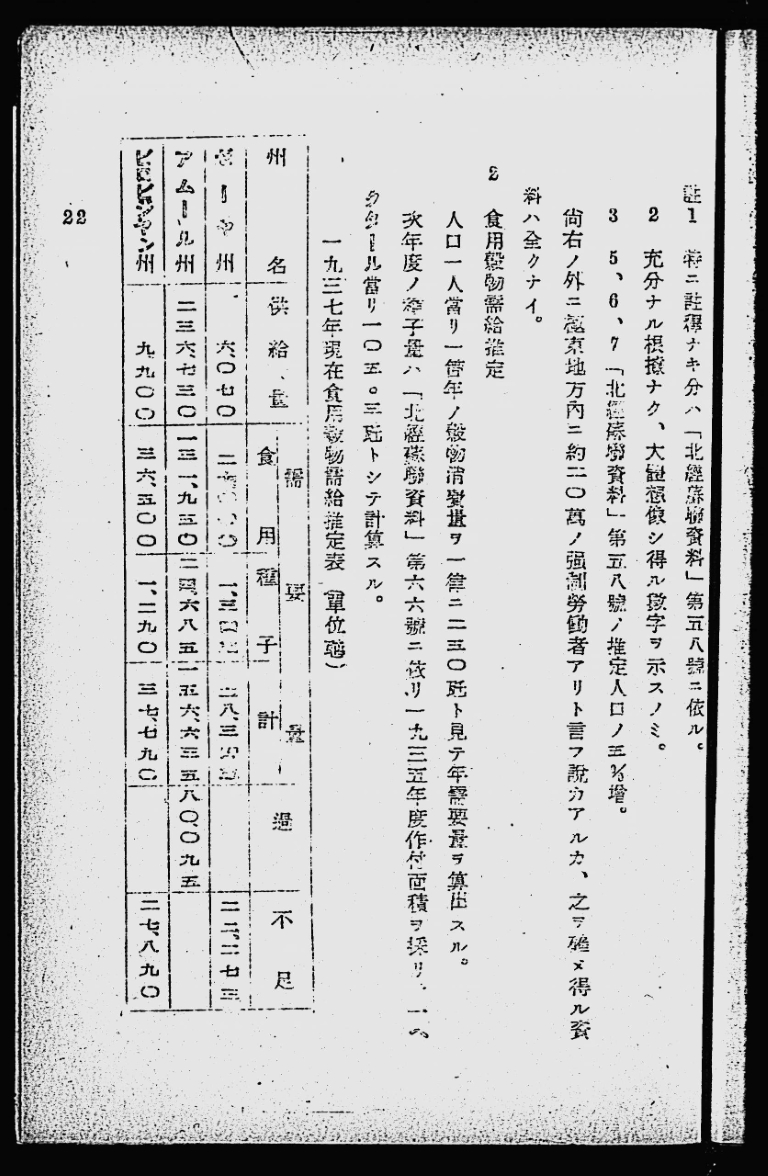 註1 特ニ註釋ナキ分ハ「北經蘇聯資料」第五八號ニ依ル。
2 充分ナル根據ナク、大體想像シ得ル數字ヲ示スノミ。
3 5、6、7「北經蘇聯資料」第五八號ノ推定人口ノ五%增。
尙右ノ外ニ極東地方內ニ約二〇萬ノ强制勞働者アリト言フ說カアルカ、之ヲ確メ得ル資
料ハ全クナイ。
2 食用穀物需給推定
人口一人當リ一箇年ノ穀物消費量ヲ一律ニ二三〇瓩ト見テ年需要量ヲ算出スル。
次年度ノ種子量ハ「北經蘇聯資料」第六六號ニ依リ一九三五年度作付面積ヲ採リ、一ヘ
クタール當リ一〇五。三瓩トシテ計算スル。
一九三七年現在食用穀物需給推定表(單位瓲)
州名 供給量 需要量 食用 種子 計 過 不足
ゼーヤ州 六、〇七〇 二、二七三
アムール州 二三六、七三〇 一三一、九五〇 二四、六八五 一五六、六三五 八〇、〇九五
ビロビジャン州 九、九〇〇 三六、五〇〇 一、二九〇 三七、七九〇 二七、八九〇
22